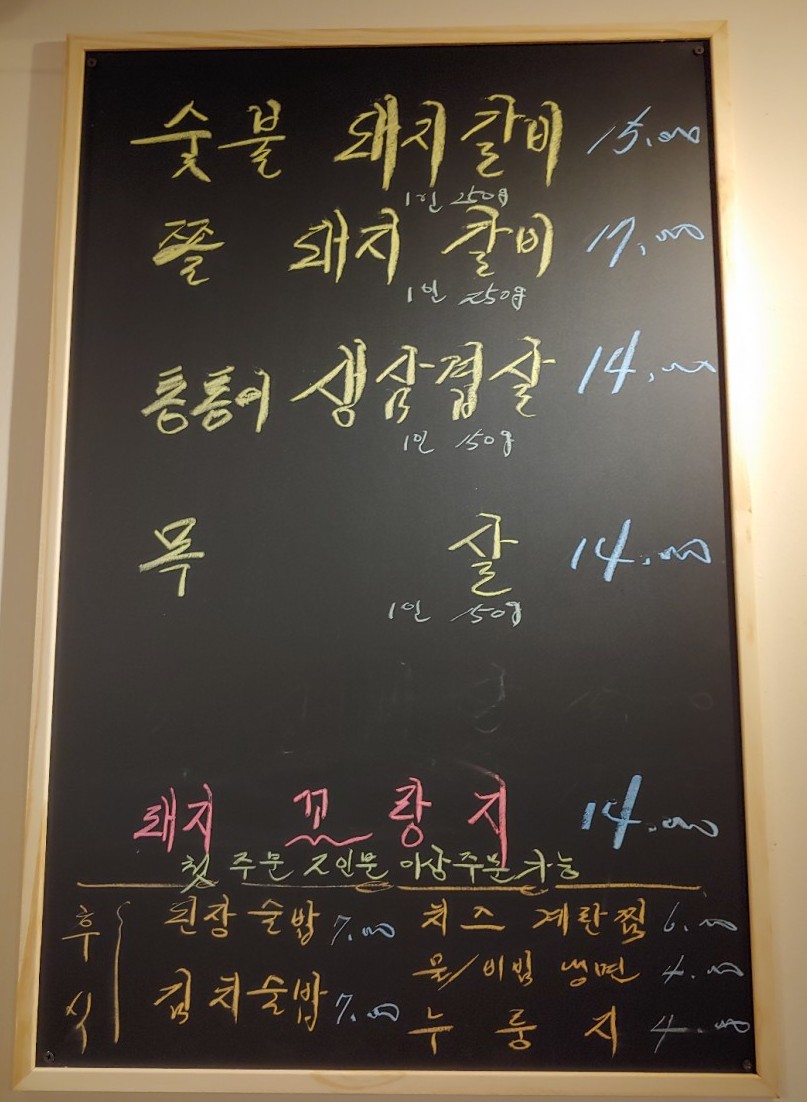 숯불 돼지갈비 15,000
1인 250g
쫄 돼지 갈비 17,000
1인 250g
통통이 생삼겹살 14,000
1인 150g
목 살 14,000
1인 150g
돼지 꼬랑지 14,000
첫 주문 2인분 이상 주문 가능
후식
된장술밥 7,000
치즈 계란찜 6,000
물/비빔 냉면 4,000
김치술밥 7,000
누룽지 4,000